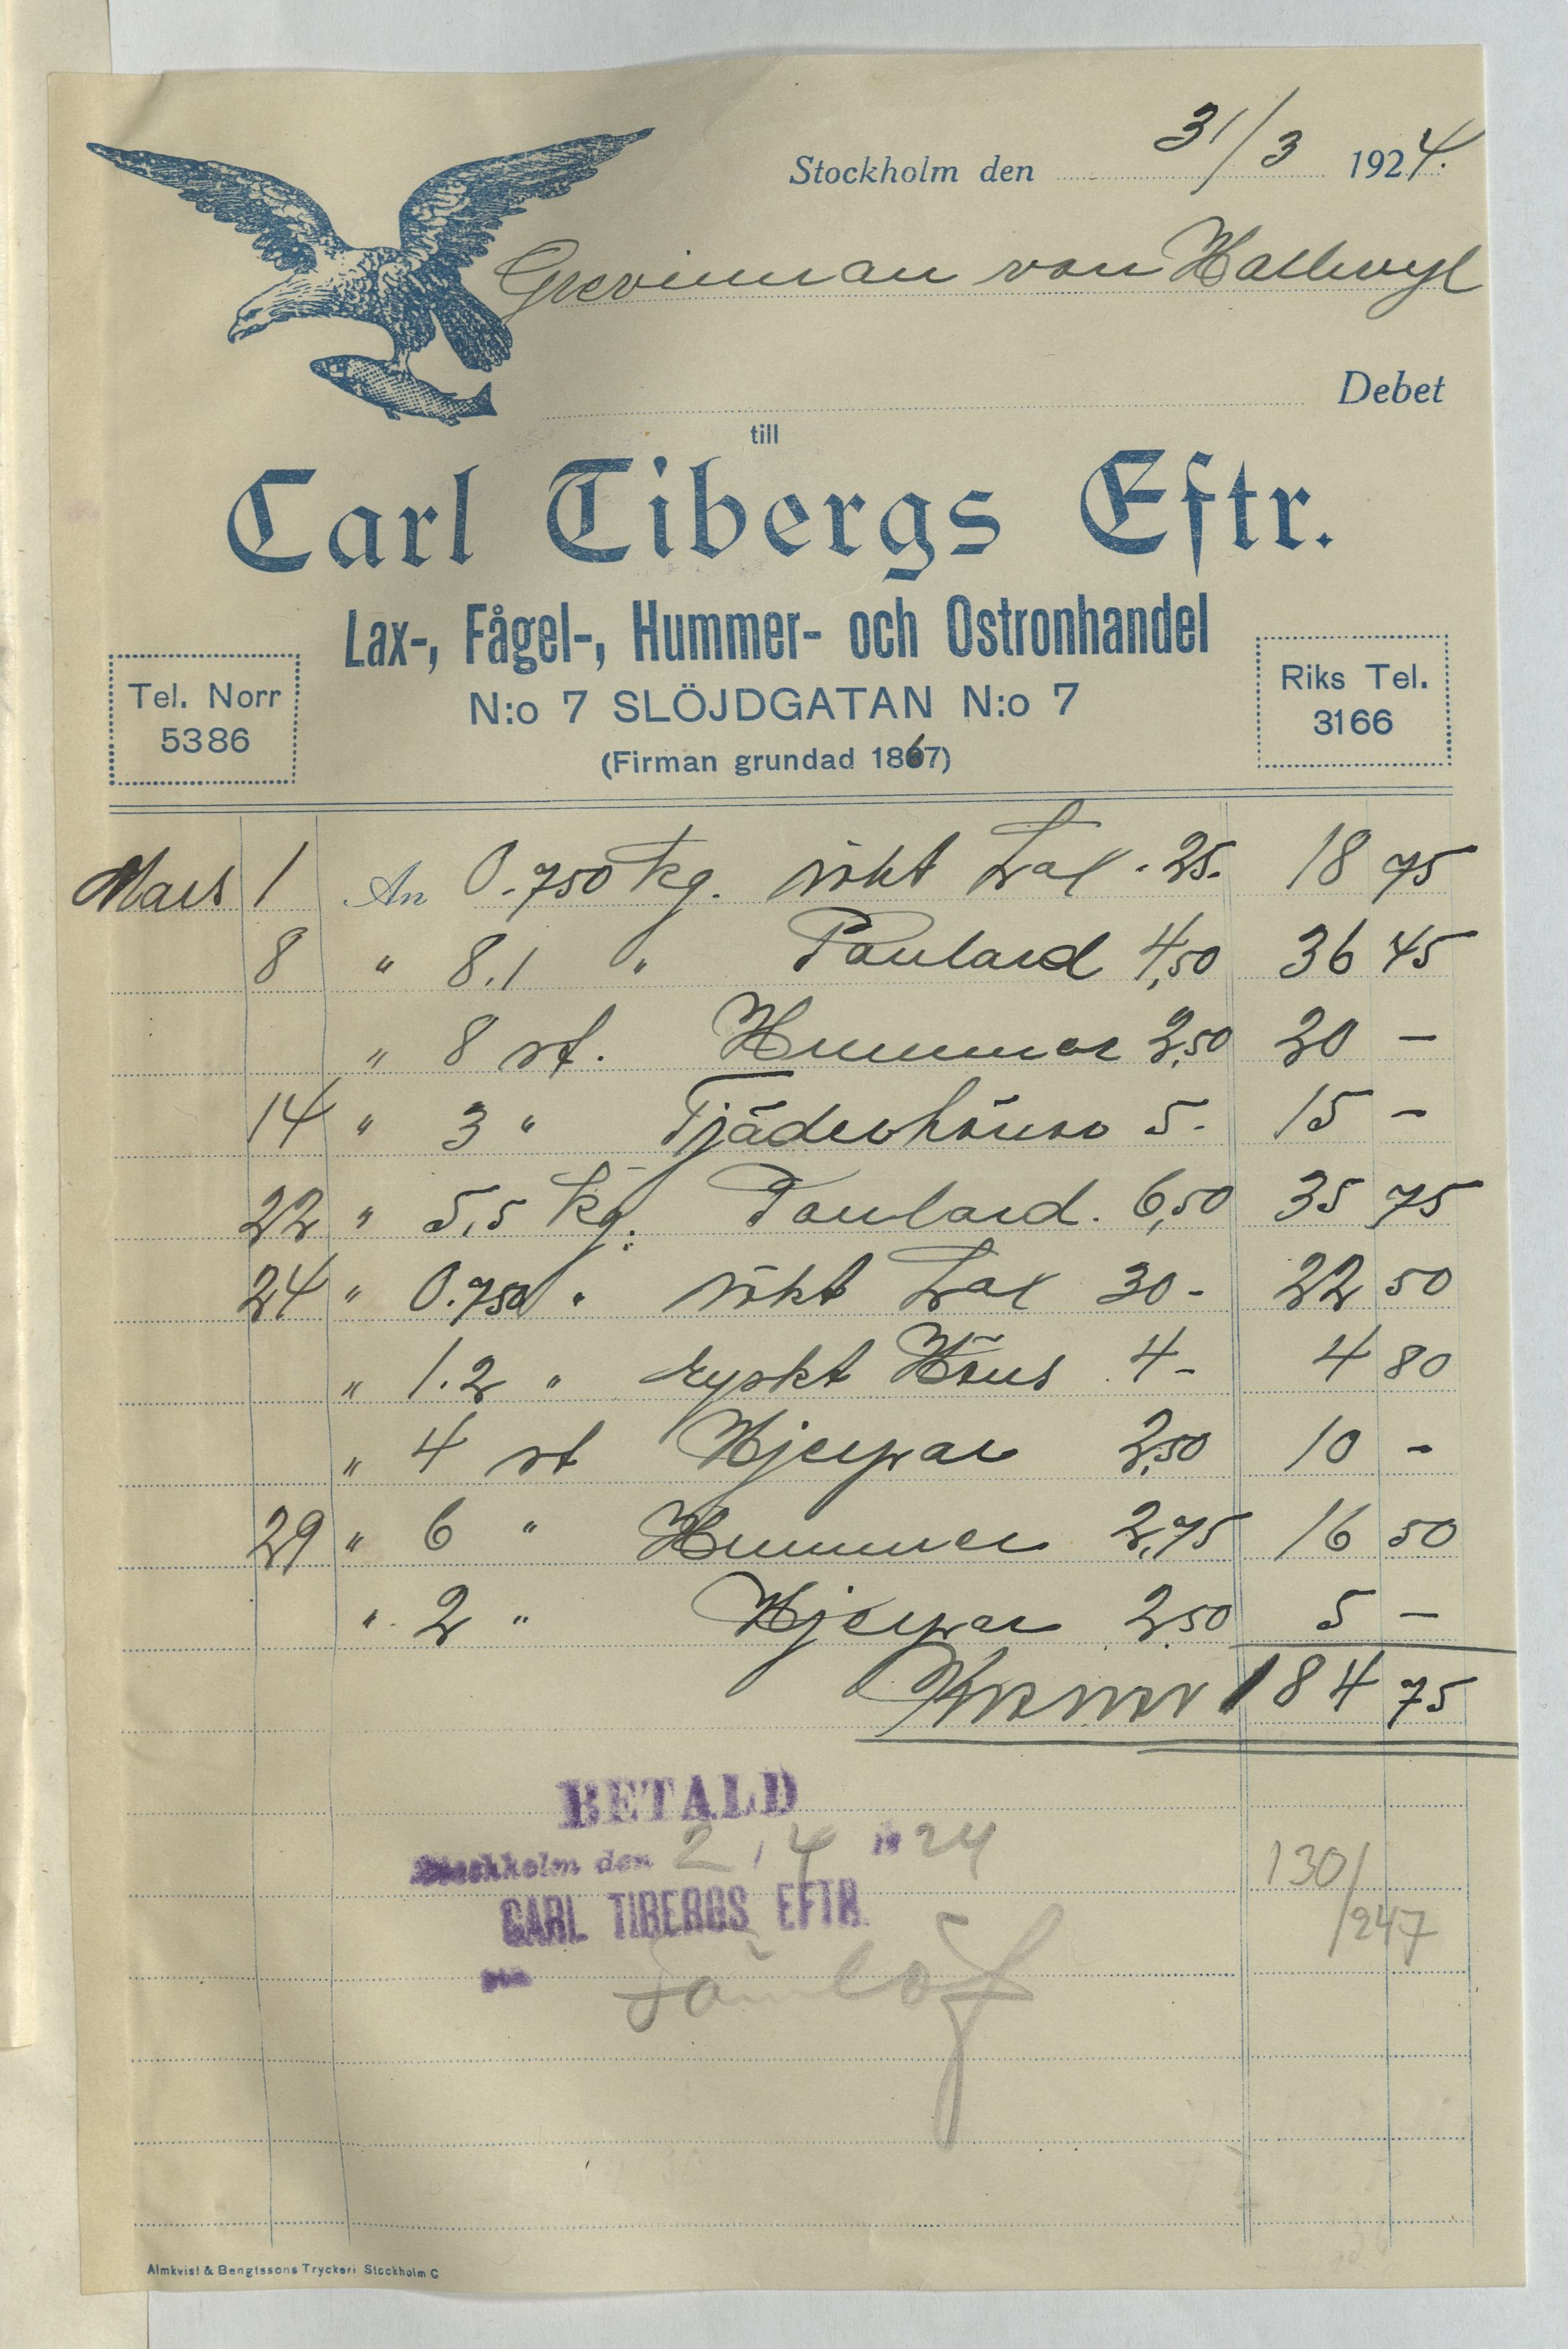 Stockholm den 31/3 1924.
Grevinnan von Hallwyl
Debet
till
Carl Tibergs Eftr.
Lax-, Fågel-, Hummer- och Ostronhandel
Tel. Norr
5386
N:o 7 SLÖJDGATAN N:o 7
Riks Tel.
3166
(Firman grundad 1867)
Mars 1 An 0.750 kg. rökt Lax . 25. 18 75
8 " 8.1 " Poulard 4,50 36 45
" 8 st. Hummer 2,50 20 –
14 " 3 " Tjäderhöns 5. 15 –
22 " 5,5 kg. Poulard. 6,50 35 75
24 " 0.750 " rökt Lax 30 - 22 50
" 1.2 " ryskt Höns 4 - 4 80
" 4 st Hjerpar 2,50 10 –
29 " 6 " Hummer 2,75 16 50
" 2 " Hjerpar 2,50 5 –
Kronor 184 75
BETALD
Stockholm den 2/4 1924
CARL TIBERGS EFTR.
130/247
Almkvist & Bengtssons Tryckeri Stockholm C